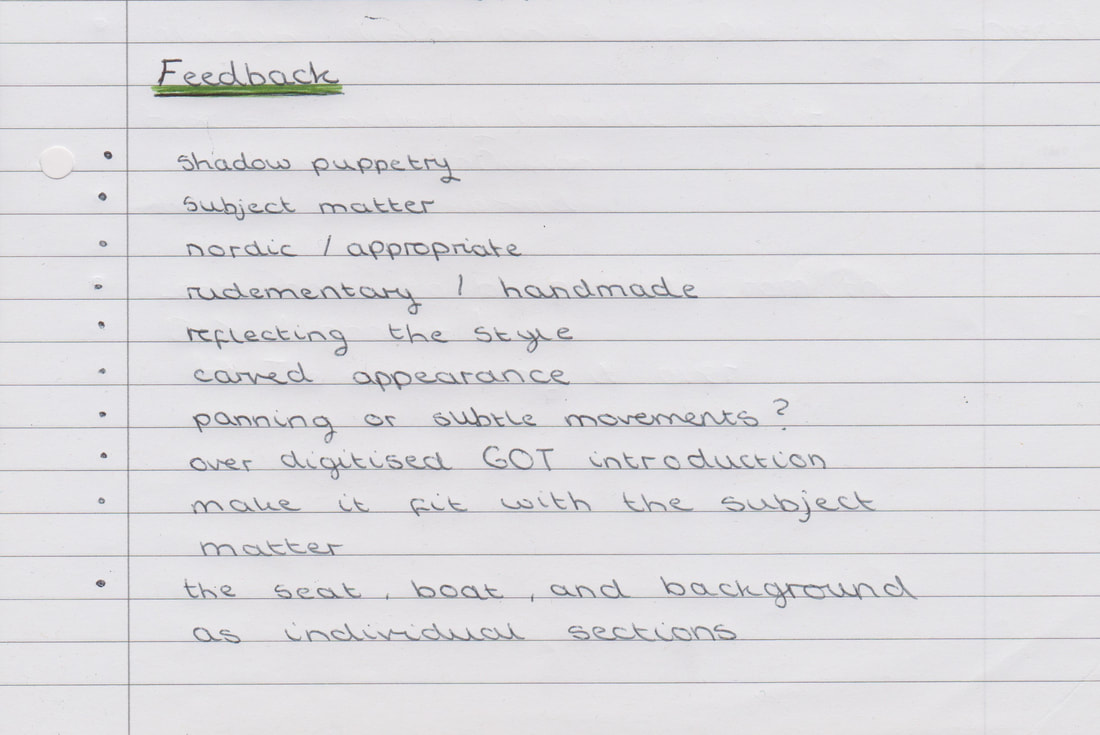 Feedback
• shadow puppetry
• subject matter
• nordic / appropriate
• rudementary / handmade
• reflecting the style
• carved appearance
• panning or subtle movements?
• over digitised GOT introduction
• make it fit with the subject
matter
• the seat, boat, and background
as individual sections